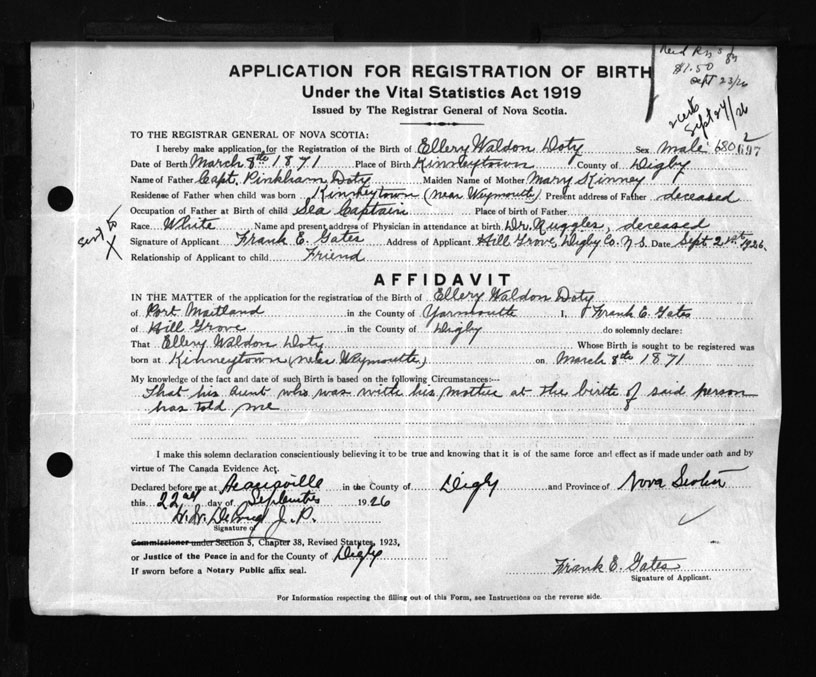 $1.50
Sept 23/26
Sept 24/26
APPLICATION FOR REGISTRATION OF BIRTH
Under the Vital Statistics Act 1919
Issued by The Registrar General of Nova Scotia.
TO THE REGISTRAR GENERAL OF NOVA SCOTIA:
I hereby make application for the Registration of the Birth of Ellery Waldon Doty Sex Male 680 2 697
Date of Birth March 8th 1871 Place of Birth Kinneytown County of Digby
Name of Father Capt. Pinkham Doty Maiden Name of Mother Mary Kinney
Residence of Father when child was born Kinneytown (near Weymouth) Present address of Father deceased
Occupation of Father at Birth of child Sea Captain Place of birth of Father
Race White Name and present address of Physician in attendance at birth Dr. Ruggles, deceased
Signature of Applicant Frank E. Gates Address of Applicant Hill Grove, Digby Co. N.S. Date Sept 21st 1926
Relationship of Applicant to child Friend
sent to X
AFFIDAVIT
IN THE MATTER of the application for the registration of the Birth of Ellery Waldon Doty
of Port Maitland in the County of Yarmouth I, Frank E. Gates
of Hill Grove in the County of Digby do solemnly declare:
That Ellery Waldon Doty Whose Birth is sought to be registered was
born at Kinneytown (near Weymouth) on March 8th 1871
My knowledge of the fact and date of such Birth is based on the following Circumstances:—
That his Aunt who was with his mother at the birth of said person
has told me
I make this solemn declaration conscientiously believing it to be true and knowing that it is of the same force and effect as if made under oath and by
virtue of The Canada Evidence Act.
Declared before me at in the County of Digby and Province of Nova Scotia
this 22nd day of September 1926
J.P.
Signature of
Commissioner under Section 5, Chapter 38, Revised Statutes, 1923,
or Justice of the Peace in and for the County of Digby
If sworn before a Notary Public affix seal.
Frank E. Gates
Signature of Applicant.
For Information respecting the filling out of this Form, see Instructions on the reverse side.